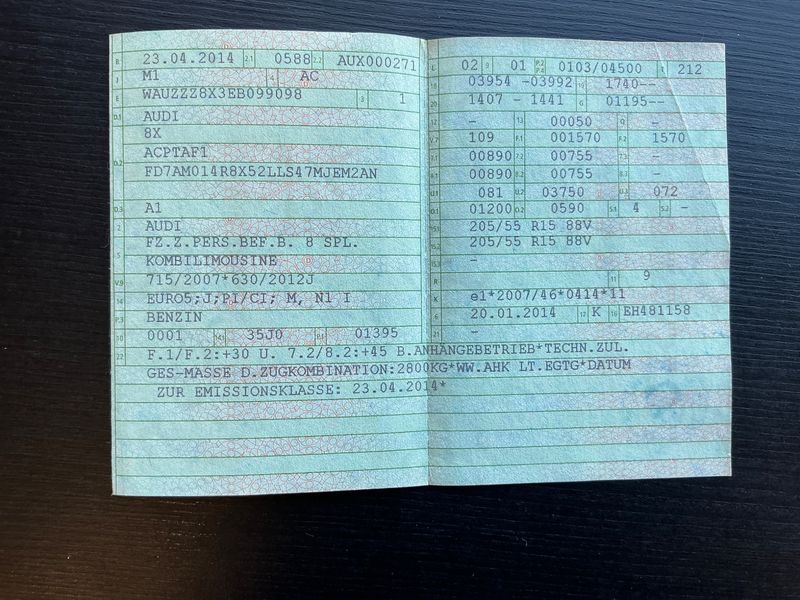 B 23.04.2014 2.1 0588 2.2 AUX000271
J M1 4 AC
E WAUZZZ8X3EB099098 3 1
D.1 AUDI
8X
D.2 ACPTAF1
FD7AM014R8X52LLS47MJEM2AN
D.3 A1
2 AUDI
5 FZ.Z.PERS.BEF.B. 8 SPL.
KOMBILIMOUSINE
V.9 715/2007*630/2012J
14 EURO5;J;PI/CI; M, N1 I
P.3 BENZIN
10 0001 14.1 35J0 P.1 01395
22 F.1/F.2:+30 U. 7.2/8.2:+45 B.ANHÄNGEBETRIEB*TECHN.ZUL.
GES-MASSE D.ZUGKOMBINATION:2800KG*WW.AHK LT.EGTG*DATUM
ZUR EMISSIONSKLASSE: 23.04.2014*
L 02 9 01 P.2 P.4 0103/04500 T 212
18 03954 -03992 19 1740--
20 1407 - 1441 G 01195--
12 - 13 00050 Q -
V.7 109 F.1 001570 F.2 1570
7.1 00890 7.2 00755 7.3 -
8.1 00890 8.2 00755 8.3 -
U.1 081 U.2 03750 U.3 072
O.1 01200 O.2 0590 S.1 4 S.2 -
15.1 205/55 R15 88V
15.2 205/55 R15 88V
15.3 -
R 11 9
K e1*2007/46*0414*11
6 20.01.2014 17 K 16 EH481158
21 -